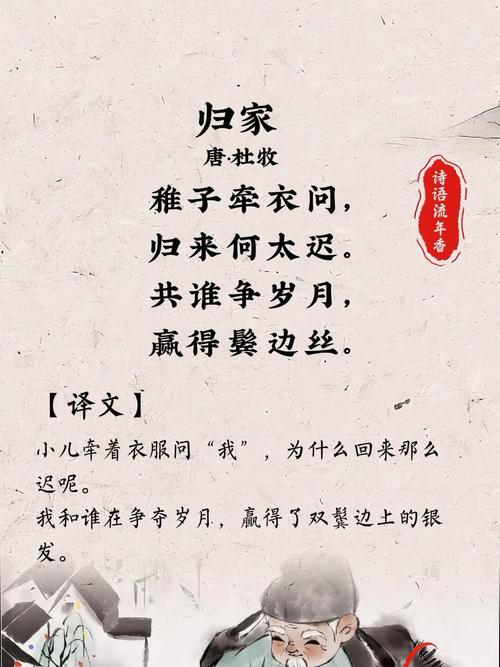 归家
唐·杜牧
稚子牵衣问，
归来何太迟。
共谁争岁月，
赢得鬓边丝。
诗语流年香
【译文】
小儿牵着衣服问“我”，为什么回来那么
迟呢。
我和谁在争夺岁月，赢得了双鬓边上的银
发。